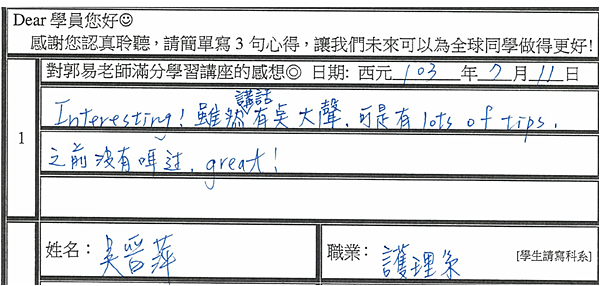 Dear 學員您好☺
感謝您認真聆聽，請簡單寫 3 句心得，讓我們未來可以為全球同學做得更好!
對郭易老師滿分學習講座的感想◎ 日期: 西元 103 年 7 月 11 日
1
Interesting! 雖然講話有點大聲, 可是有 lots of tips,
之前沒有嘢过, great!
姓名： 吳晉萍 職業： 護理系 [學生請寫科系]